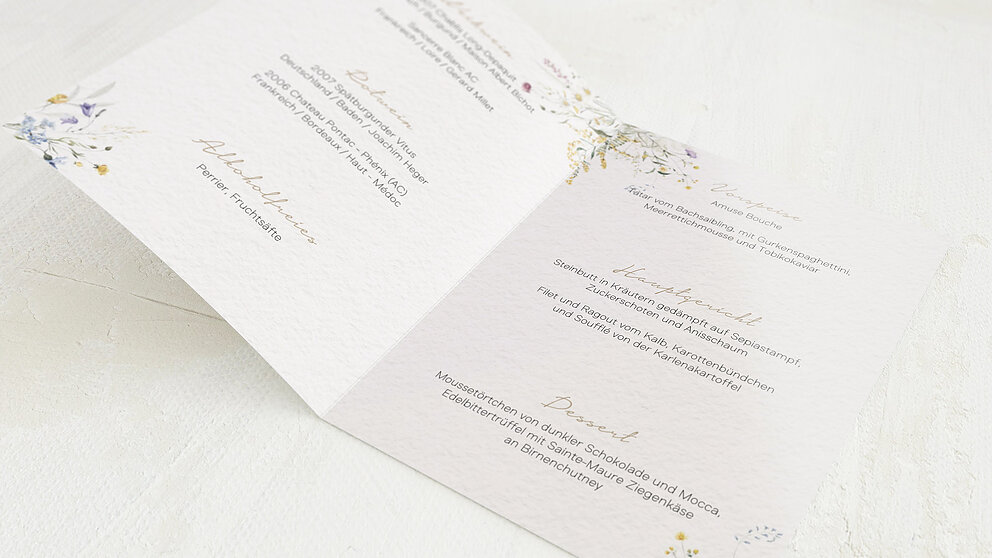 Chablis Long-Depaquit
Burgund / Maison Albert Bichot
Sancerre Blanc AC
Frankreich / Loire / Gerard Millet
Rotwein
2007 Spätburgunder Vitus
Deutschland / Baden / Joachim Heger
2006 Chateau Pontac - Phénix (AC)
Frankreich / Bordeaux / Haut - Médoc
Alkoholfreies
Perrier, Fruchtsäfte
Vorspeise
Amuse Bouche
Tatar vom Bachsaibling, mit Gurkenspaghettini,
Meerrettichmousse und Tobikokaviar
Hauptgericht
Steinbutt in Kräutern gedämpft auf Sepiastampf,
Zuckerschoten und Anisschaum
Filet und Ragout vom Kalb, Karottenbündchen
und Soufflé von der Karlenakartoffel
Dessert
Moussetörtchen von dunkler Schokolade und Mocca,
Edelbittertrüffel mit Sainte-Maure Ziegenkäse
an Birnenchutney